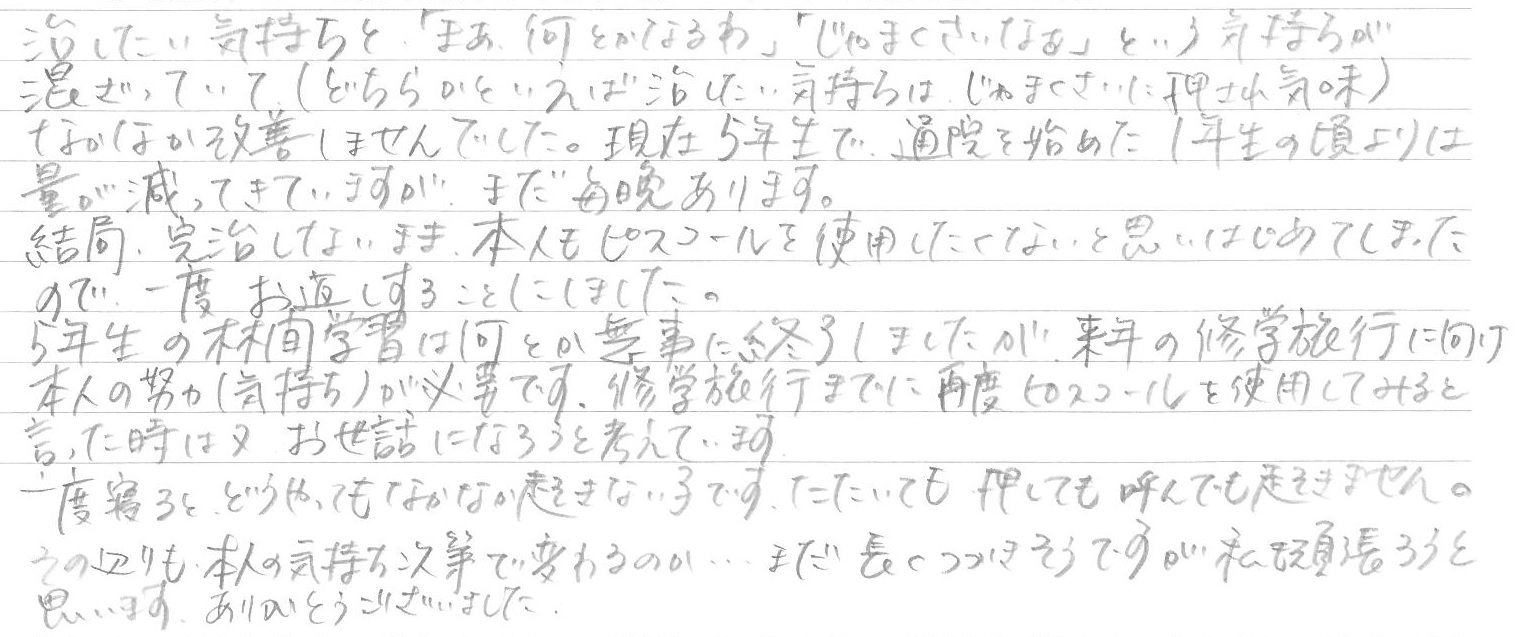 治したい気持ちと、「まあ、何とかなるわ」「じゃまくさいなぁ」という気持ちが
混ざっていて、(どちらかといえば治したい気持ちは、じゃまくさいに押され気味)
なかなか改善しませんでした。現在5年生で、通院を始めた1年生の頃よりは
量が減ってきていますが、まだ毎晩あります。
結局、完治しないまま、本人もピスコールを使用したくないと思いはじめてしまった
ので、一度お返しすることにしました。
5年生の林間学習は何とか無事に終了しましたが、来年の修学旅行に向け
本人の努力(気持ち)が必要です。修学旅行までに再度ピスコールを使用してみると
言った時は又お世話になろうと考えています
一度寝ると、どうやってもなかなか起きない子です。たたいても押しても呼んでも起きません。
その辺りも、本人の気持ち次第で変わるのか…まだ長くつづきそうですが、私も頑張ろうと
思います。ありがとうございました。